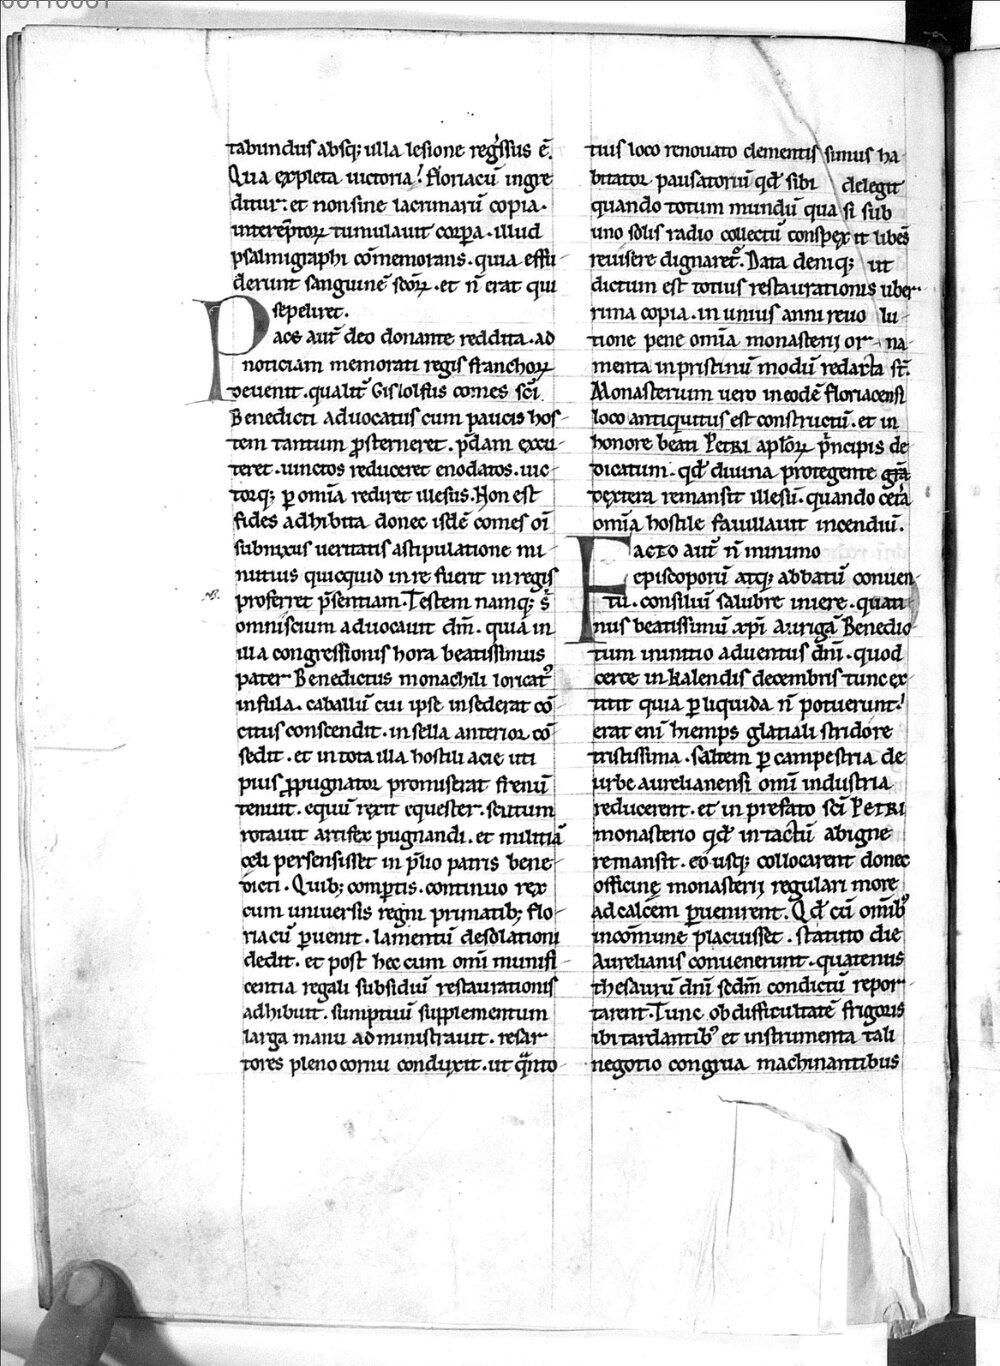 tabundus absq; illa lesione regr̄ssus ē.
Qua expleta uictoria! floriacū ingre
ditur: et non sine lacrimarū copia.
interēptoꝝ tumulauit corꝑa. illud
psalmigraphi cōmemorans. quia effu
derunt sanguinē scōꝝ. et n̄ erat qui
sepeliret.
Pace aut̄ deo donante reddita. ad
noticiam memorati regis franchoꝝ
deuenit. qualit̄ Gislolfus comes sc̄i
Benedicti aduocatus cum paucis hos
tem tantum ꝓsterneret. p̄dam excu
teret. uinctos reduceret enodatos. uic
torq; ꝑ omīa rediret illesus. Non est
fides adhibita donec isdē comes oī
subnixus ueritatis astipulatione mi
nutius quicquid in re fuerit in regis
proferret p̄sentiam. Testem namq; s̄
omniscium aduocauit dm̄. quia in
illa congressionis hora beatissimus
pater Benedictus monachili loricat᷒
infula. caballū cui ipse insederat cō
citus conscendit. in sella anteriori cō
sedit. et in tota illa hostili acie uti
pius ꝓpugnator promiserat frenū
tenuit. equū rexit equester. scutum
rotauit artifex pugnandi. et militiā
celi persensisset in p̄lio patris bene
dicti. Quib; comꝑtis. continuo rex
cum uniuersis regni primatib; flo
riacū ꝑuenit. lamentū desolationi
dedit. et post hec cum omī munifi
centia regali subsidiū restaurationis
adhibuit. sumptuū supplementum
larga manu administrauit. resar
tores pleno cornu conduxit. ut q̄nto
tius loco renouato clementissimus ha
bitator pausatoriū qd̄ sibi delegit
quando totum mundū quasi sub
uno solis radio collectū conspexit libēs
reuisere dignaret᷒. Data deniq; ut
dictum est totius restaurationis uber
rima copia. in unius anni reuolu
tione pene omīa monasterij orna
menta in pristinū modū redacta st̄.
Monasterium uero in eodē floriacensi
loco antiquitus est constructū. et in
honore beati PETRI aplōꝝ p̄ncipis de
dicatum. qd̄ diuina protegente gr̄a
dextera remansit illesū. quando cet̄a
omīa hostile fauillauit incendiū.
Facto aut̄ n̄ minimo
episcoporū atq; abbatū conuen
tu. consiliū salubre iniere. quati
nus beatissimū xp̄i Aurigā Benedic
tum in initio aduentus dn̄i. quod
certe in kalendis decembris tunc ex
titit quia ꝑ liquida n̄ potuerunt!
erat enī hiemps glatiali stridore
tristissima. saltem ꝑ campestria de
urbe aurelianensi omī industria
reducerent. et in prefato sc̄i PETRI
monasterio qd̄ intactū ab igne
remansit. eo usq; collocarent donec
officinę monasterij regulari more
ad calcem ꝑuenirent. Qd̄ cū omīb᷒
in cōmune placuisset. statuto die
Aurelianis conuenerunt. quatenus
thesaurū dn̄i scdm̄ condictū repor
tarent. Tunc ob difficultatē frigoris
ibi tardantib᷒ et instrumenta tali
negotio congrua machinantibus